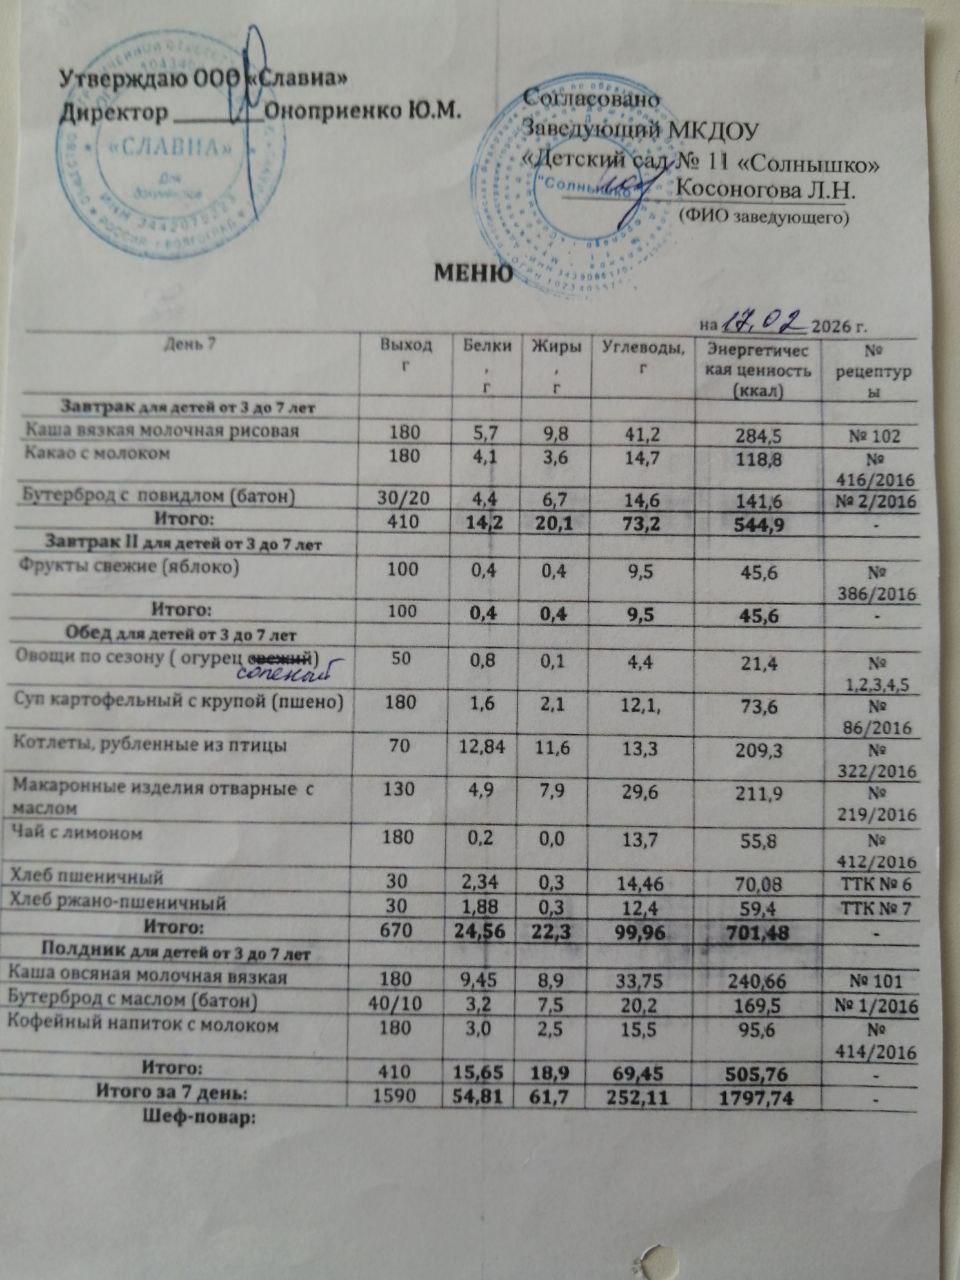 Утверждаю ООО «Славиа»
Директор ________ Оноприенко Ю.М.
«СЛАВИА»
Для
документов
Согласовано
Заведующий МКДОУ
«Детский сад № 11 «Солнышко»
"Солнышко"
Косоногова Л.Н.
(ФИО заведующего)
МЕНЮ
на 17.02 2026 г.
День 7 Выход г Белки, г Жиры, г Углеводы, г Энергетическая ценность (ккал) № рецептуры
Завтрак для детей от 3 до 7 лет
Каша вязкая молочная рисовая 180 5,7 9,8 41,2 284,5 № 102
Какао с молоком 180 4,1 3,6 14,7 118,8 № 416/2016
Бутерброд с повидлом (батон) 30/20 4,4 6,7 14,6 141,6 № 2/2016
Итого: 410 14,2 20,1 73,2 544,9 -
Завтрак II для детей от 3 до 7 лет
Фрукты свежие (яблоко) 100 0,4 0,4 9,5 45,6 № 386/2016
Итого: 100 0,4 0,4 9,5 45,6 -
Обед для детей от 3 до 7 лет
Овощи по сезону ( огурец свежий) 50 0,8 0,1 4,4 21,4 № 1,2,3,4,5
соленый
Суп картофельный с крупой (пшено) 180 1,6 2,1 12,1, 73,6 № 86/2016
Котлеты, рубленные из птицы 70 12,84 11,6 13,3 209,3 № 322/2016
Макаронные изделия отварные с маслом 130 4,9 7,9 29,6 211,9 № 219/2016
Чай с лимоном 180 0,2 0,0 13,7 55,8 № 412/2016
Хлеб пшеничный 30 2,34 0,3 14,46 70,08 ТТК № 6
Хлеб ржано-пшеничный 30 1,88 0,3 12,4 59,4 ТТК № 7
Итого: 670 24,56 22,3 99,96 701,48 -
Полдник для детей от 3 до 7 лет
Каша овсяная молочная вязкая 180 9,45 8,9 33,75 240,66 № 101
Бутерброд с маслом (батон) 40/10 3,2 7,5 20,2 169,5 № 1/2016
Кофейный напиток с молоком 180 3,0 2,5 15,5 95,6 № 414/2016
Итого: 410 15,65 18,9 69,45 505,76 -
Итого за 7 день: 1590 54,81 61,7 252,11 1797,74 -
Шеф-повар: